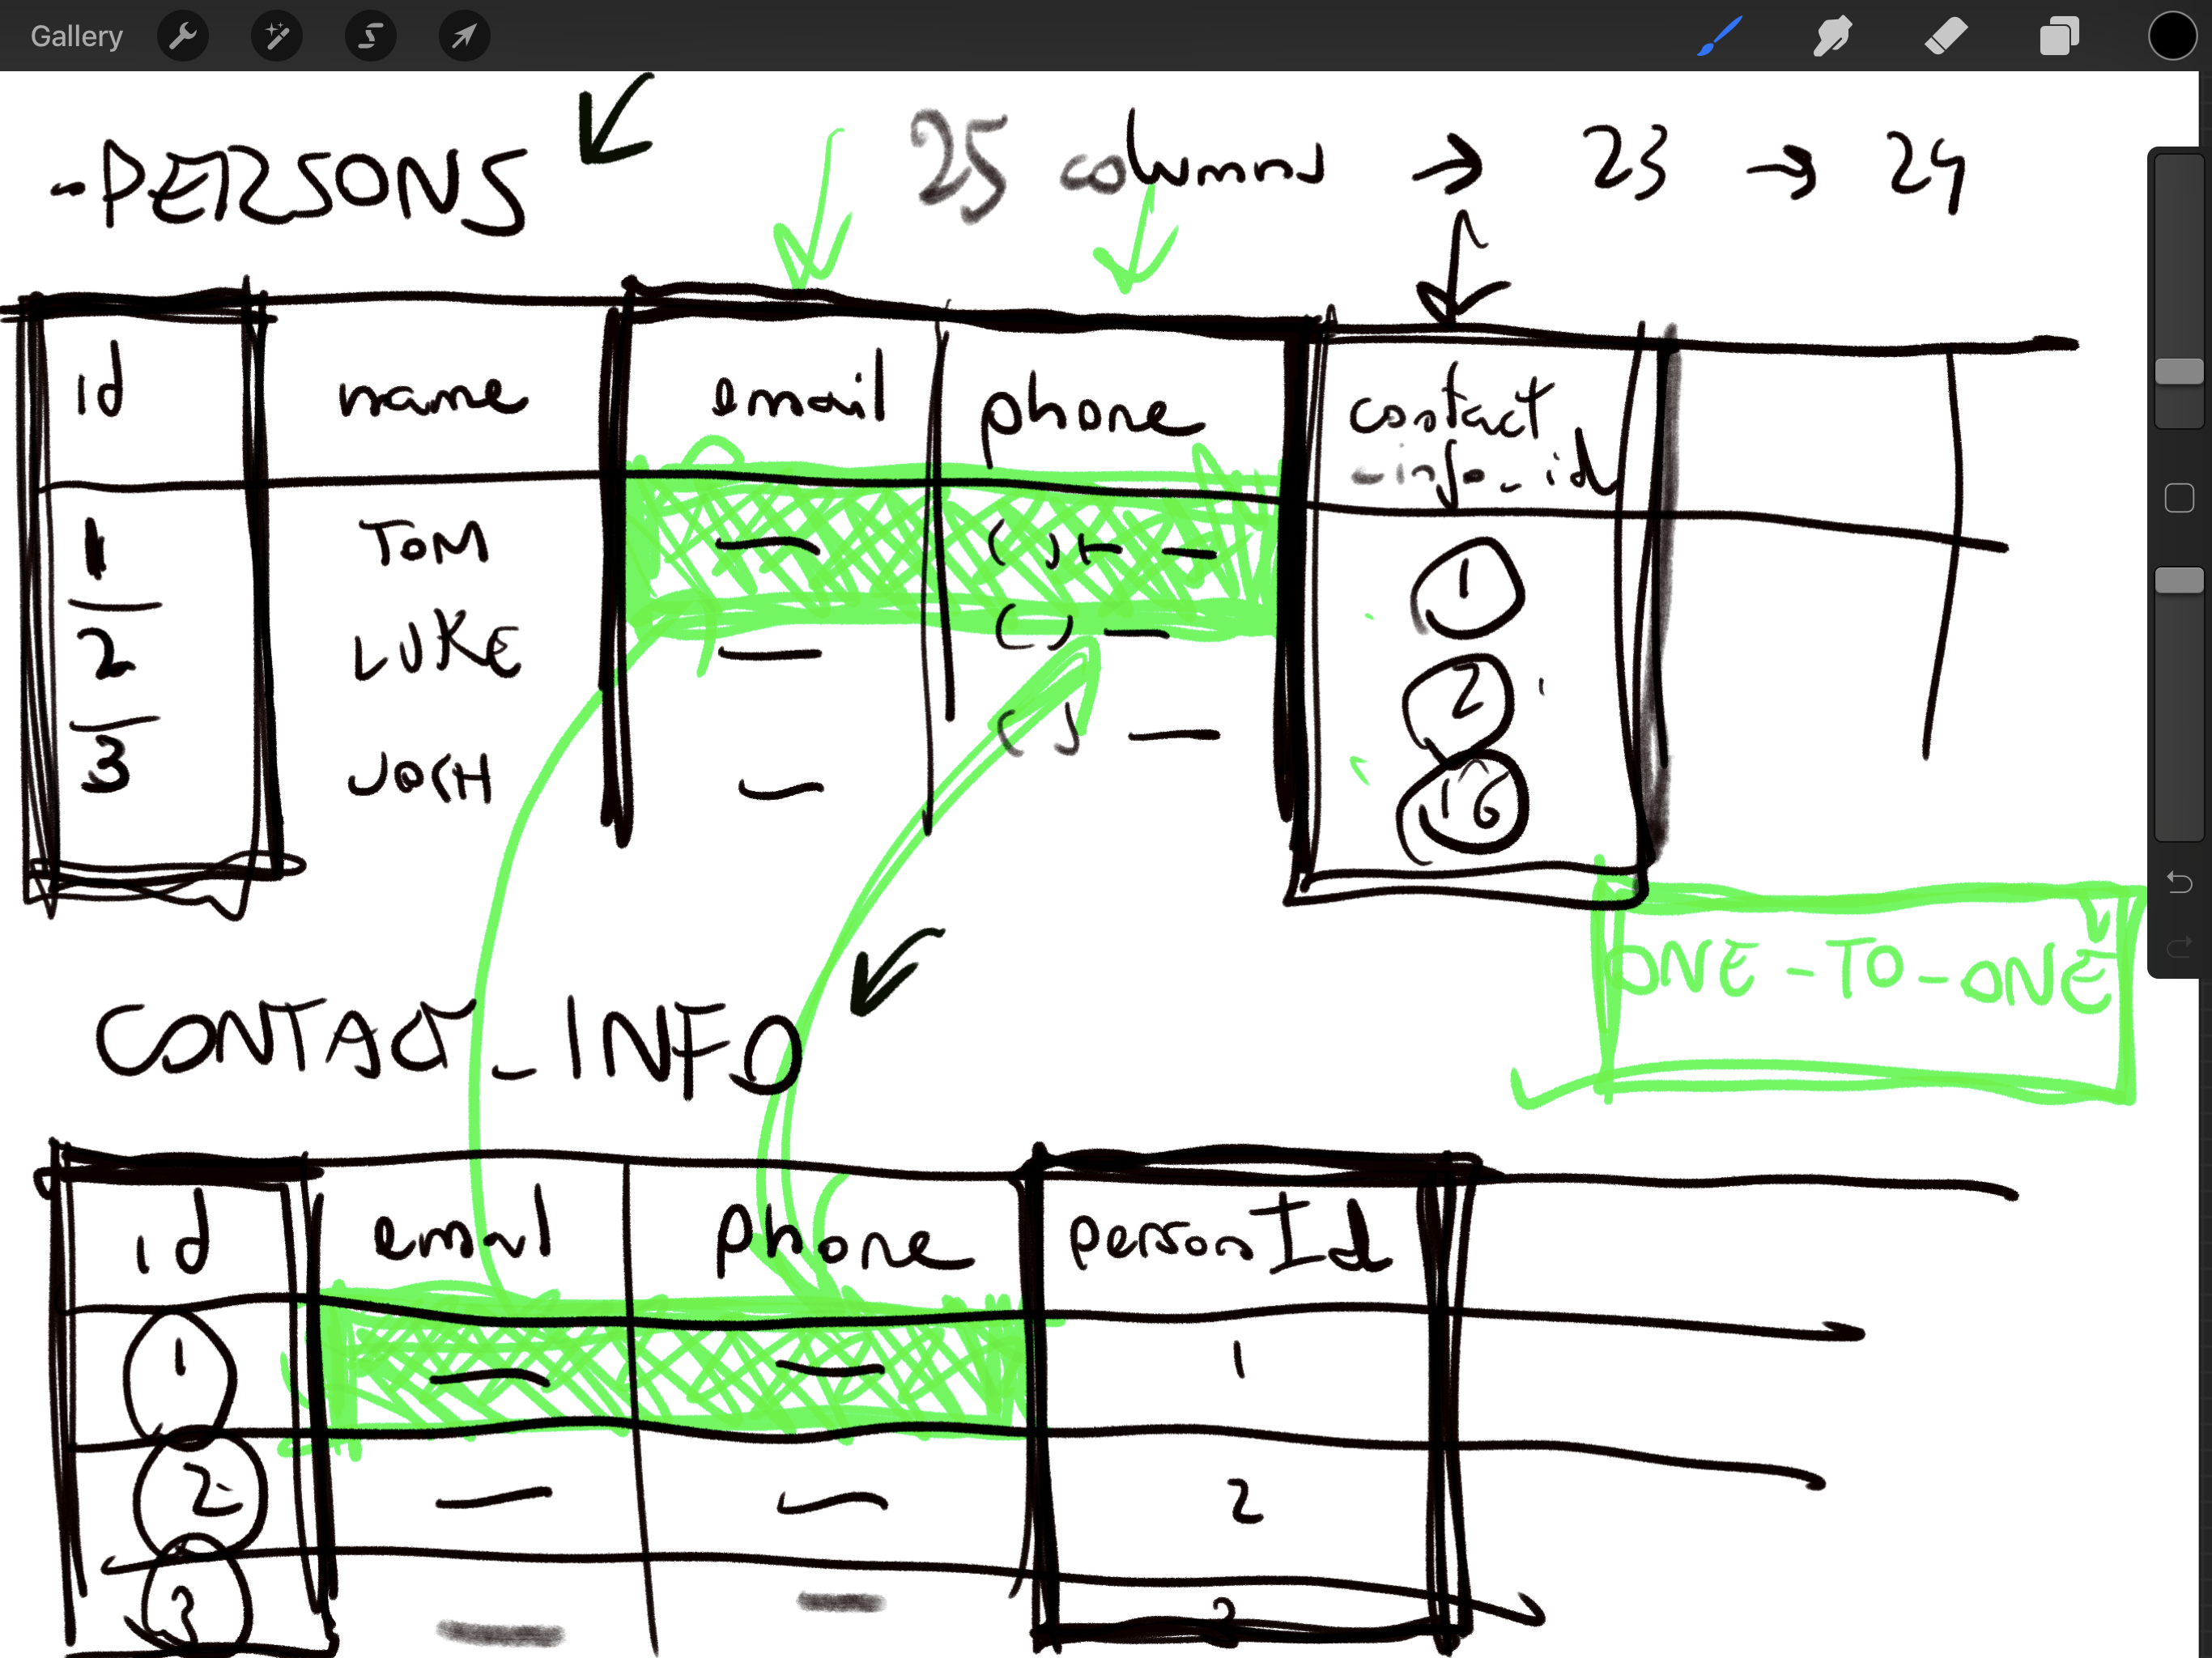 Gallery
-PERSONS
25 columns → 23 → 24
id name email phone contact
-info-id
1 TOM — ( ) — — 1
2 LUKE — ( ) — 2
3 JOSH — ( ) — 16
ONE-TO-ONE
CONTACT_INFO
id email phone personId
1 — — 1
2 — — 2
3 — —